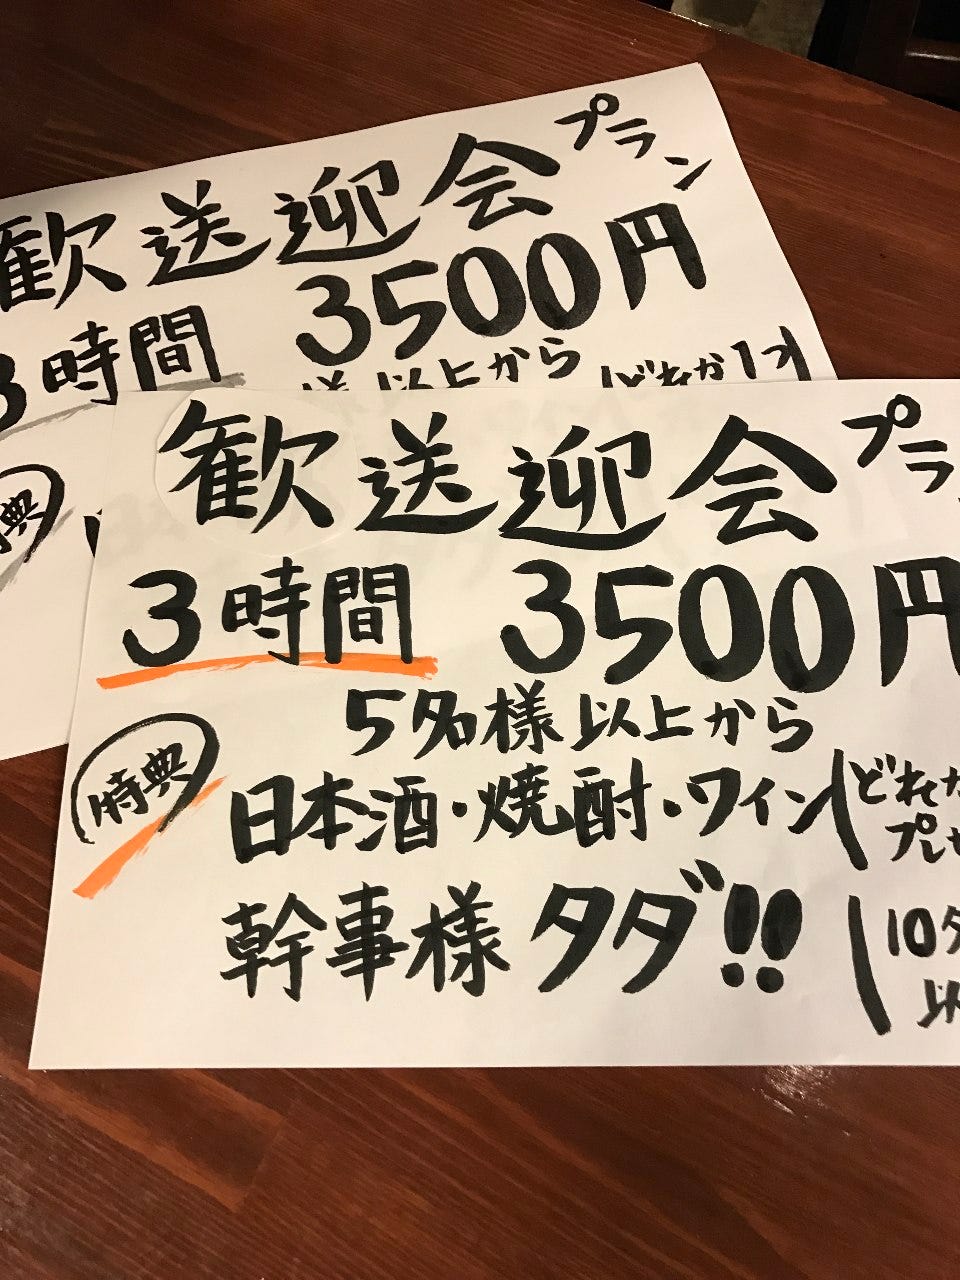 歓送迎会プラン
3時間 3500円
様以上から どれか1つ
特典
歓送迎会プラ
3時間 3500円
5名様以上から
特典
日本酒・焼酎・ワイン どれか
プレゼ
幹事様タダ!! 10名
以